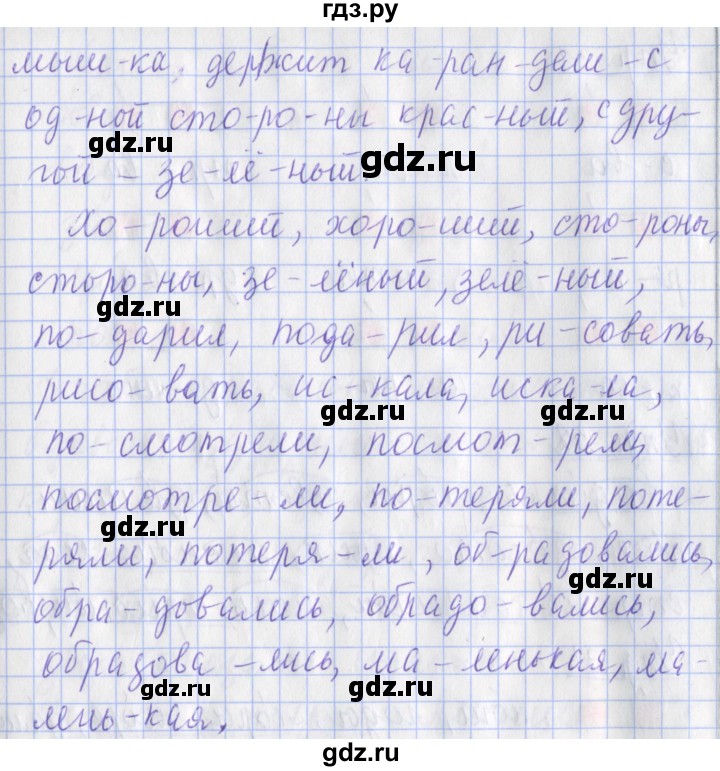 гдз.ру
мыш-ка, держит ка-ран-даш -с
од-ной сто-ро-ны крас-ный, с дру-
gdz.ru
gdz.ru
гой - зе-лё-ный.
Хо-роший, хоро-ший, сто-роны,
сторо-ны, зе-лёный, зелё-ный,
gdz.ru
gdz.ru
по-дарил, пода-рил, ри-совать,
рисо-вать, ис-кала, иска-ла,
gdz.ru
gdz.ru
по-смотрели, посмот-рели,
посмотре-ли, по-теряли, поте-
gdz.ru
ряли, потеря-ли, об-радовались,
gdz.ru
обра-довались, обрадо-вались,
обрадова-лись, ма-ленькая, ма-
gdz.ru
gdz.ru
лень-кая.
gdz.ru